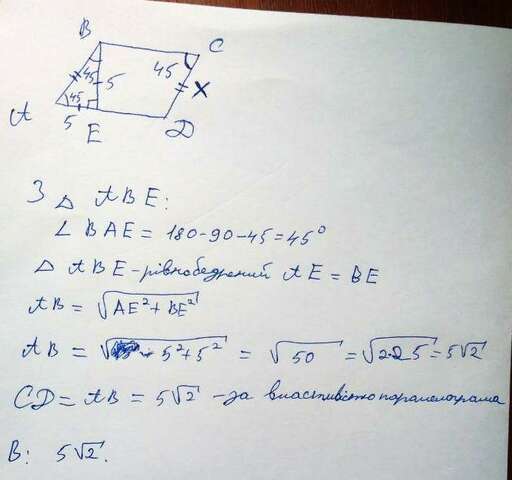 B
C
45
45
5
x
45
A
5
E
D
З △ ABE:
∠ BAE = 180-90-45=45°
△ ABE-рівнобедрений AE = BE
AB = √AE²+BE²
AB = √5²+5² = √50 = √2·25 = 5√2
CD = AB = 5√2 - за властивістю паралелограма
В: 5√2.